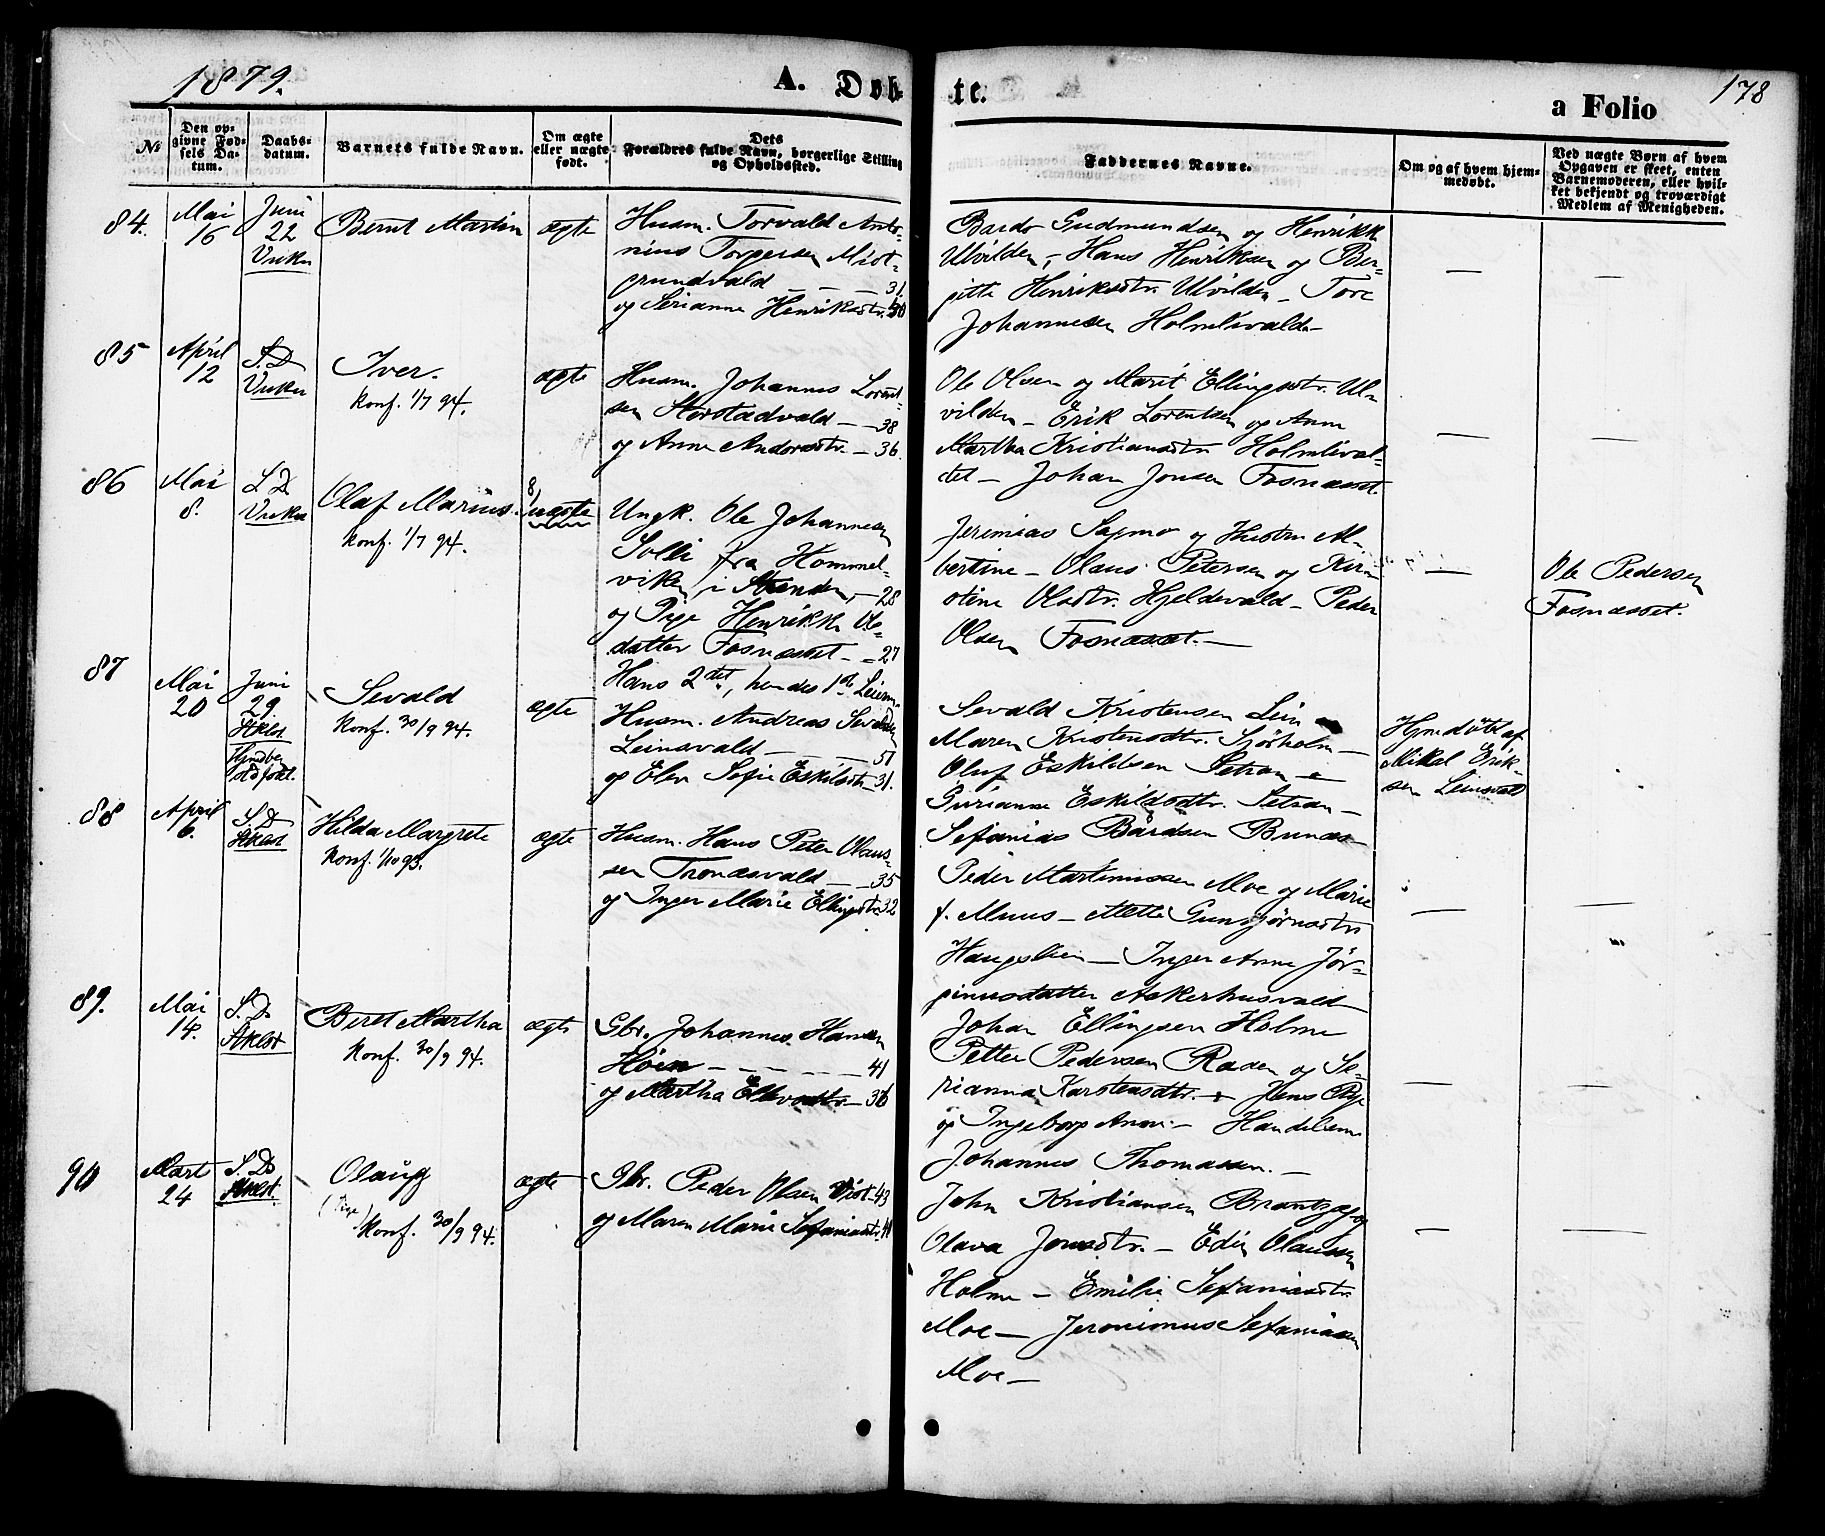 1879.
A. Døb-
te.
a Folio
178
№
Den op-
givne Fød-
sels Da-
tum.
Daabs-
datum.
Barnets fulde Navn.
Om ægte
eller uægte
født.
Dets
Forældres fulde Navn, borgerlige Stilling
og Opholdssted.
Faddernes Navne.
Om og af hvem hjem-
medøbt.
Ved uægte Børn af hvem
Opgaven er skeet, enten
Barnemoderen, eller hvil-
ket bekjendt og troværdigt
Medlem af Menigheden.
84.
Mai
16
Juni
22
Vuku
Bernt Martin
ægte
Husm. Torvald Anto-
nius Torgersen Midt-
grundvald — — — 31.
og Serianna Henriksdtr. 30
Bardo Gudmundsen og Henrikke
Ulvilden, — Hans Henriksen og Ber-
gitte Henriksdtr. Ulvilden — Tore
Johannesen Holmlivald —
—
—
85
April
12
S. D.
Vuku
Iver.
Konf. 1/7 94.
ægte
Husm. Johannes Lorent-
sen Storstadvald — — 38
og Anne Andersdtr. — 36.
Ole Olsen og Marit Ellingsdtr. Ul-
vilden — Erik Lorentsen og Anne
Martha Kristiansdtr Holmlival-
det — Johan Jonsen Fosnæsset.
—
—
86
Mai
8.
S. D.
Vuku
Olaf Marius.
Konf. 1/7 94.
8/
uægte
Ungk. Ole Johannesen
Solli fra Hommel-
viken, i Stranden, — 28
og Pige Henrikke Ols-
datter Fosnæsset — — 27
Hans 2det, hendes 1ste Leierm.
Jeremias Sagmo og Hustru Al-
bertine — Olaus Petersen og Kir-
stine Olsdtr. Hjeldevald — Peder
Olsen Fosnæsset. —
—
Ole Pedersen
Fosnæsset.
87
Mai
20
Juni
29
Stklst.
Hjmdbens
stadfæst.
Sevald
Konf. 30/9 94.
ægte
Husm. Andreas Sevaldsen
Leinsvald — — — 51
og Elen Sofie Eskilsdtr — 31.
Sevald Kristensen Lein
Maren Kristensdtr. Sjøholm —
Oluf Eskildsen Setran —
Gurianne Eskildsdtr. Setran —
Sefanias Bårdsen Bunæs
Hjmedöbt af
Mikal Erik-
sen Leinsvald
88
April
6.
S. D.
Stklst
Hilda Margrete
Konf. 1/10 93.
ægte
Husm. Hans Peter Olaus-
sen Tronæsvald — — 35
og Inger Marie Ellingsdtr 32
Peder Martinussen Moe og Marie
f. Muus — Mette Gunbjørnsdtr
Haugslien — Inger Anne Jör-
ginusdatter Askerhusvald
Johan Ellingsen Holme
—
—
89.
Mai
14.
S. D.
Stklst
Beret Martha
Konf. 30/9 94.
ægte
Gbr. Johannes Hansen
Høin — — — — 41
og Martha Ellevsdtr. — 36
Petter Pedersen Raden og Se-
rianna Karstensdtr. — Jens Rye
og Ingeborg Anne — Handelsm.
Johannes Thomassen. —
—
—
90
Mart
24
S. D.
Stklst.
Olaug
(Pige)
Konf. 30/9 94.
ægte
Gbr. Peder Olsen Vist — 43
og Maren Marie Sefaniasdtr.
John Kristiansen Brantzæg og
Olava Jonsdtr. — Edin Olaussen
Holme — Emilie Sefaniasdtr
Moe — Jeronimus Sefaniassen
Moe —
—
—